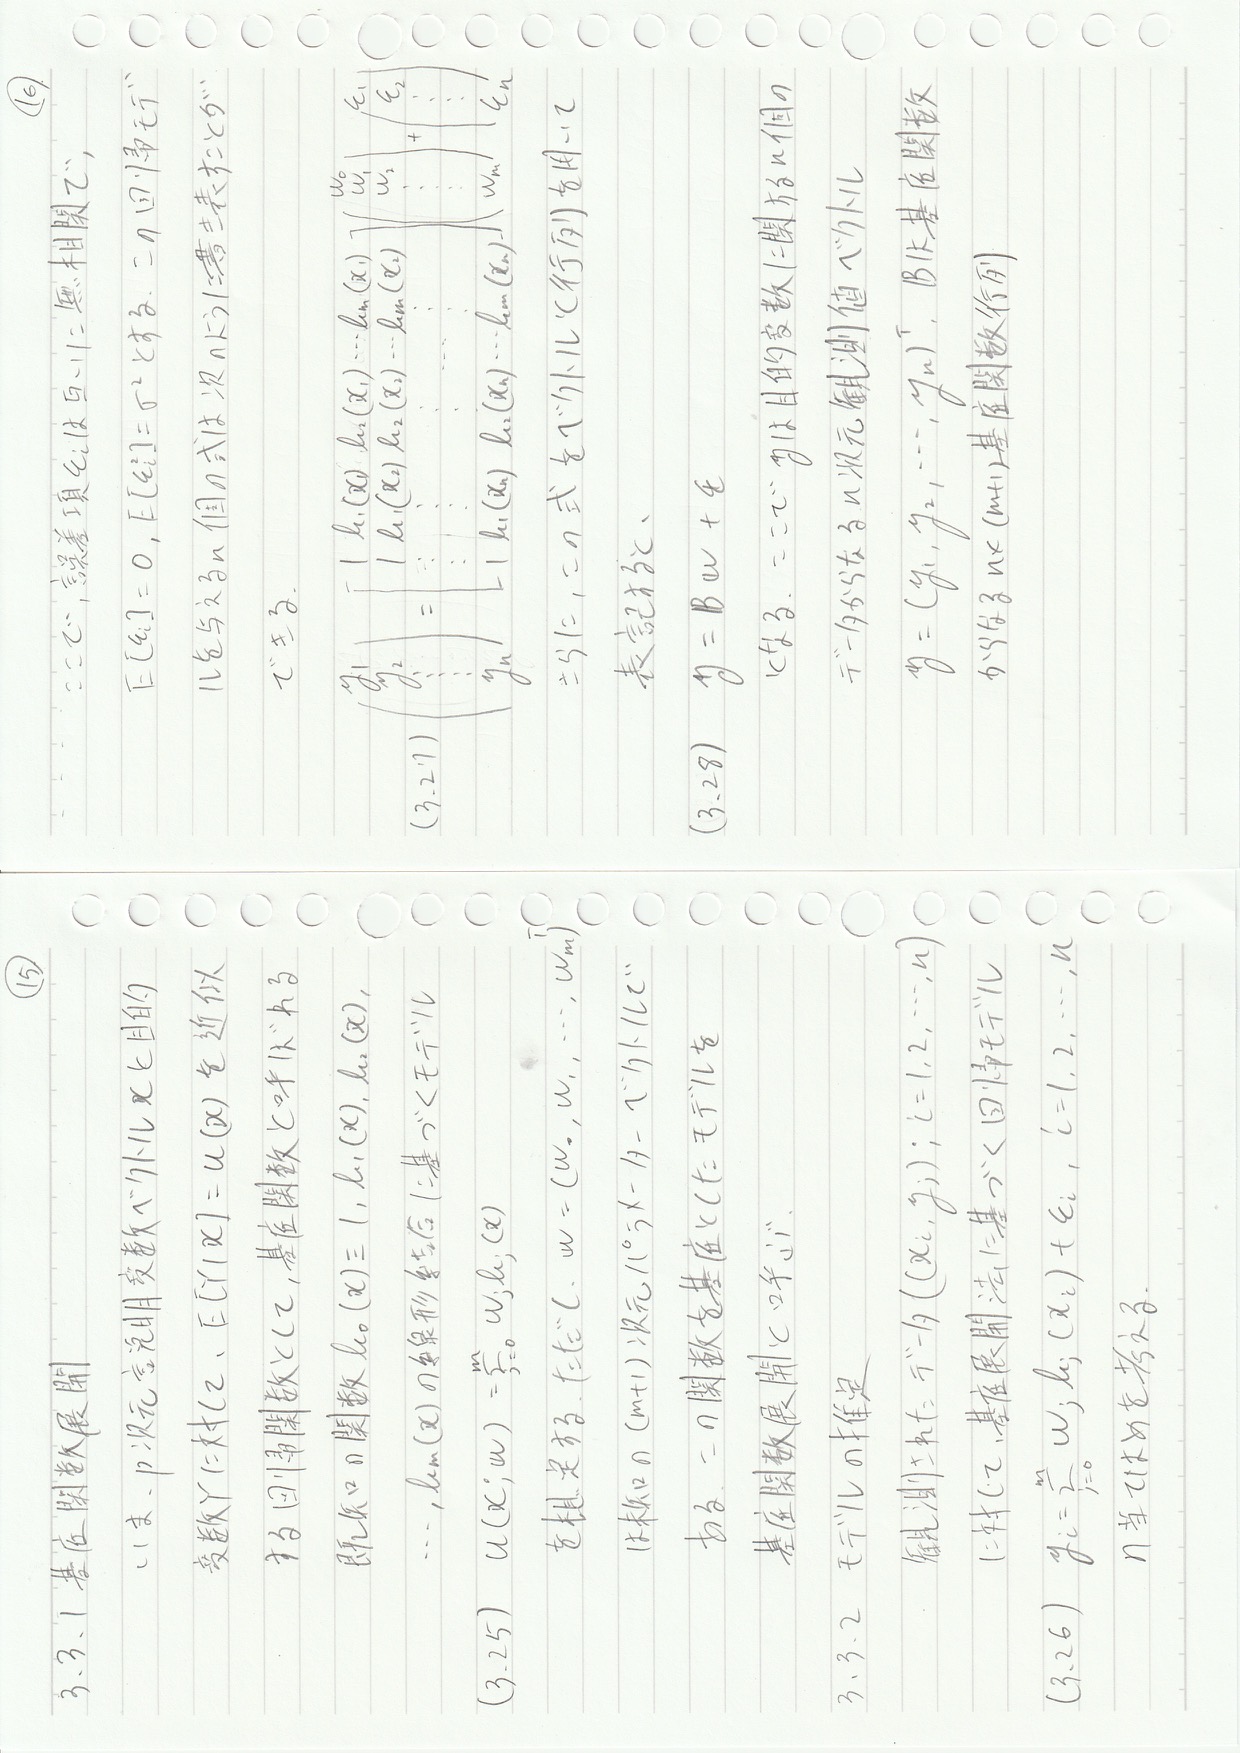 ⑮
3.3.1 基底関数展開
いま、p次元説明変数ベクトルxと目的
変数Yに対して、E[Y|x]=u(x)を近似
する回帰関数として,基底関数と呼ばれる
既知の関数h₀(x)≡1, h₁(x), h₂(x),
…, hm(x)の線形結合に基づくモデル
(3.25) u(x;w) = Σ_{j=0}^{m} wⱼhⱼ(x)
を想定する.ただし、w=(w₀,w₁,…,wm)ᵀ
は未知の(m+1)次元パラメーターベクトルで
ある.この関数を基底としたモデルを
基底関数展開と呼ぶ.
3.3.2 モデルの推定
観測されたデータ((xᵢ,yⱼ); i=1,2,…,n)
に対して、基底展開法に基づく回帰モデル
(3.26) yᵢ=Σ_{j=0}^{m} wⱼhⱼ(xᵢ)+εᵢ, i=1,2,…,n
の当てはめを考える.
⑯
ここで,誤差項εᵢは互いに無相関で,
E[εᵢ]=0, E[εᵢ²]=σ²とする.この回帰モデ
ルを与えるn個の式は次のように書き表すことが
できる.
(3.27)
y₁ 1 h₁(x₁) h₂(x₁) … hm(x₁) w₀ w₁ ε₁
y₂ = 1 h₁(x₂) h₂(x₂) … hm(x₂) w₂ + ε₂
yn 1 h₁(xn) h₂(xn) … hm(xn) wm εn
さらに,この式をベクトルと行列を用いて
表記すると、
(3.28) y = Bw + ε
となる.ここでyは目的変数に関するn個の
データからなるn次元観測値ベクトル
y=(y₁,y₂,…,yn)ᵀ, Bは基底関数
からなるn×(m+1)基底関数行列